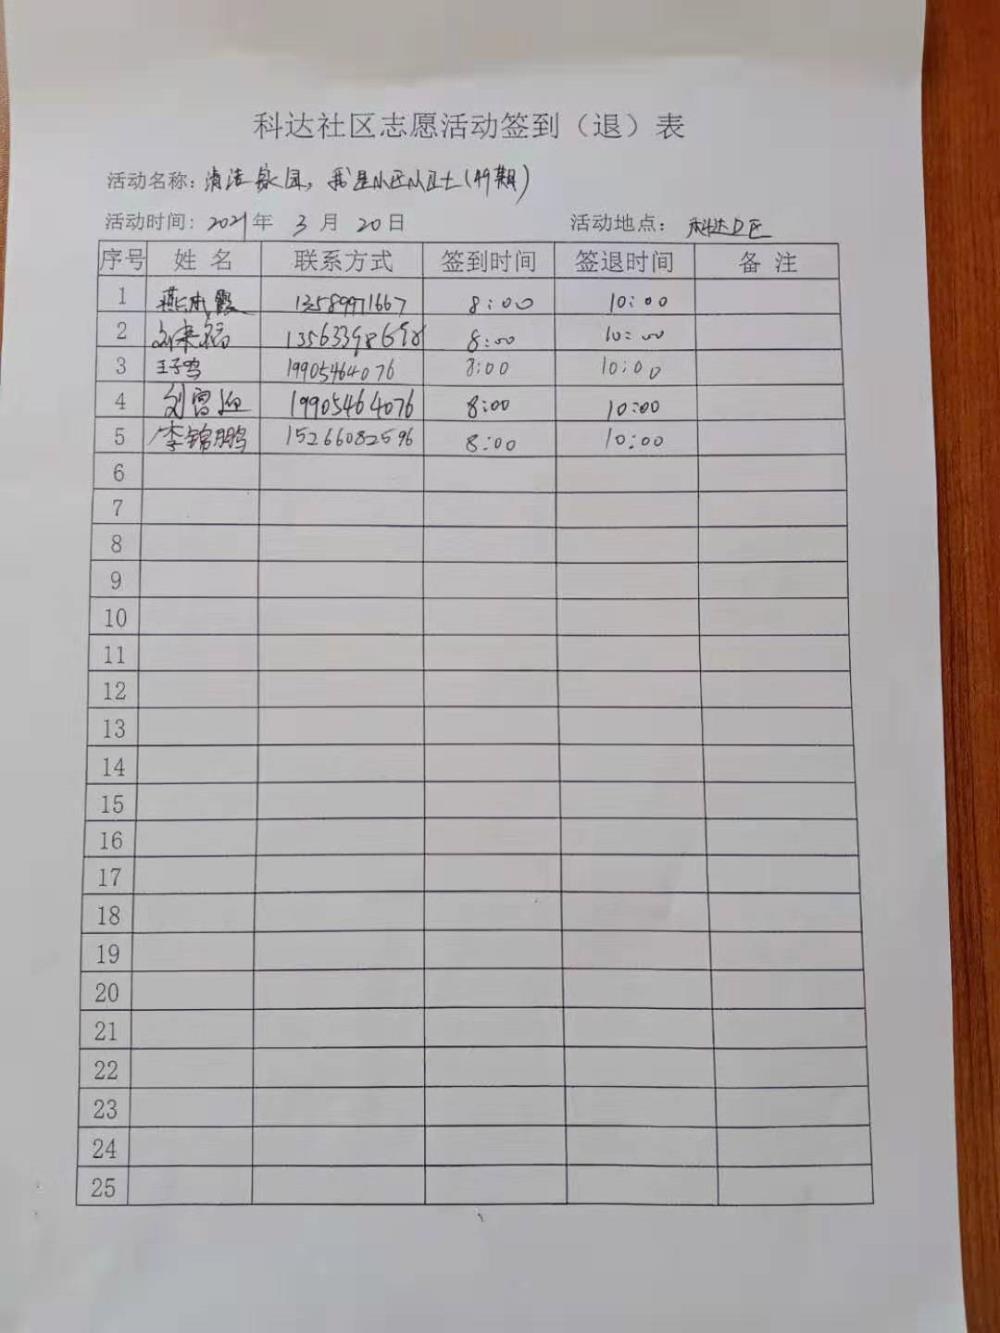 科达社区志愿活动签到（退）表
活动名称：清洁家园，我是小区小卫士(49期)
活动时间：2021年 3 月 20日 活动地点：科达D区
序号 姓 名 联系方式 签到时间 签退时间 备 注
1 燕成霞 13589971667 8:00 10:00
2 刘来福 13563398698 8:00 10:00
3 王子鸣 19905464076 8:00 10:00
4 刘雪迎 19905464076 8:00 10:00
5 李锦鹏 15266082596 8:00 10:00
6
7
8
9
10
11
12
13
14
15
16
17
18
19
20
21
22
23
24
25